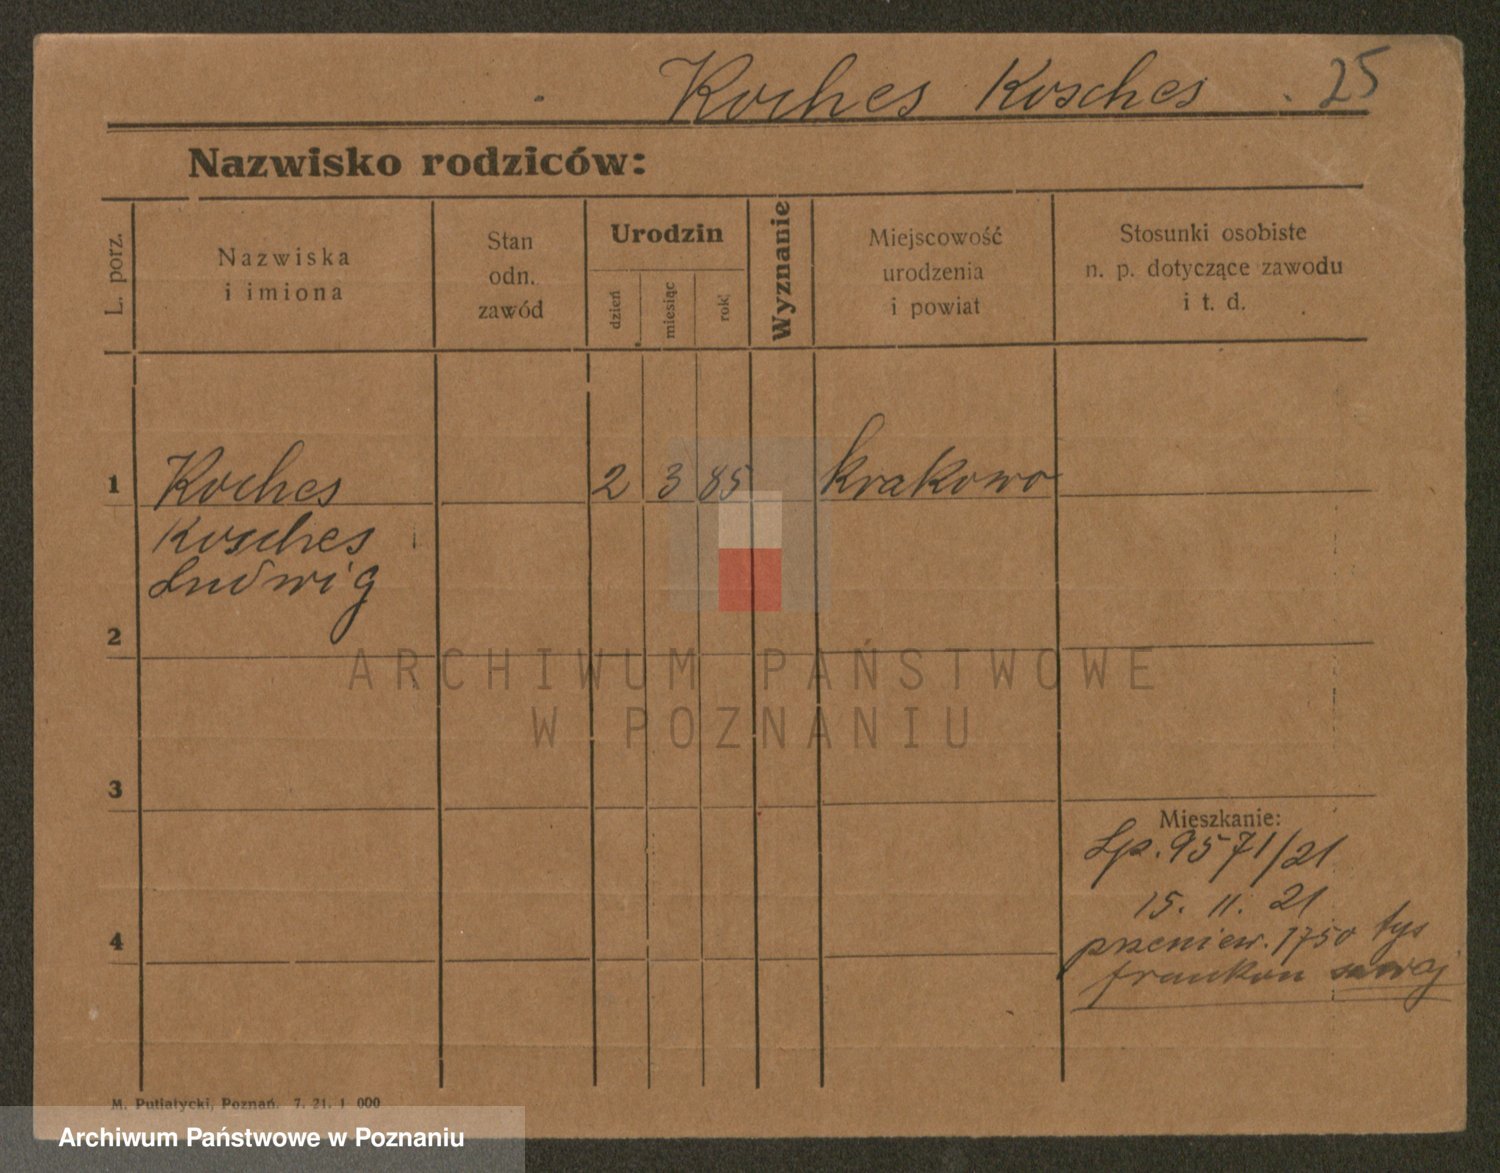 Koches Kosches . 25
Nazwisko rodziców:
L. porz.
Nazwiska
i imiona
Stan
odn.
zawód
Urodzin
dzień
miesiąc
rok
Wyznanie
Miejscowość
urodzenia
i powiat
Stosunki osobiste
n. p. dotyczące zawodu
i t. d.
1 Koches 2 3 85 Krakowo
Kosches
Ludwig
2
3
Mieszkanie:
Lp. 9571/21
15. 11. 21
4
przeniew. 1750 tys
frankow
M. Putiatycki, Poznań. 7. 21. 1 000
ARCHIWUM PAŃSTWOWE
W POZNANIU
Archiwum Państwowe w Poznaniu